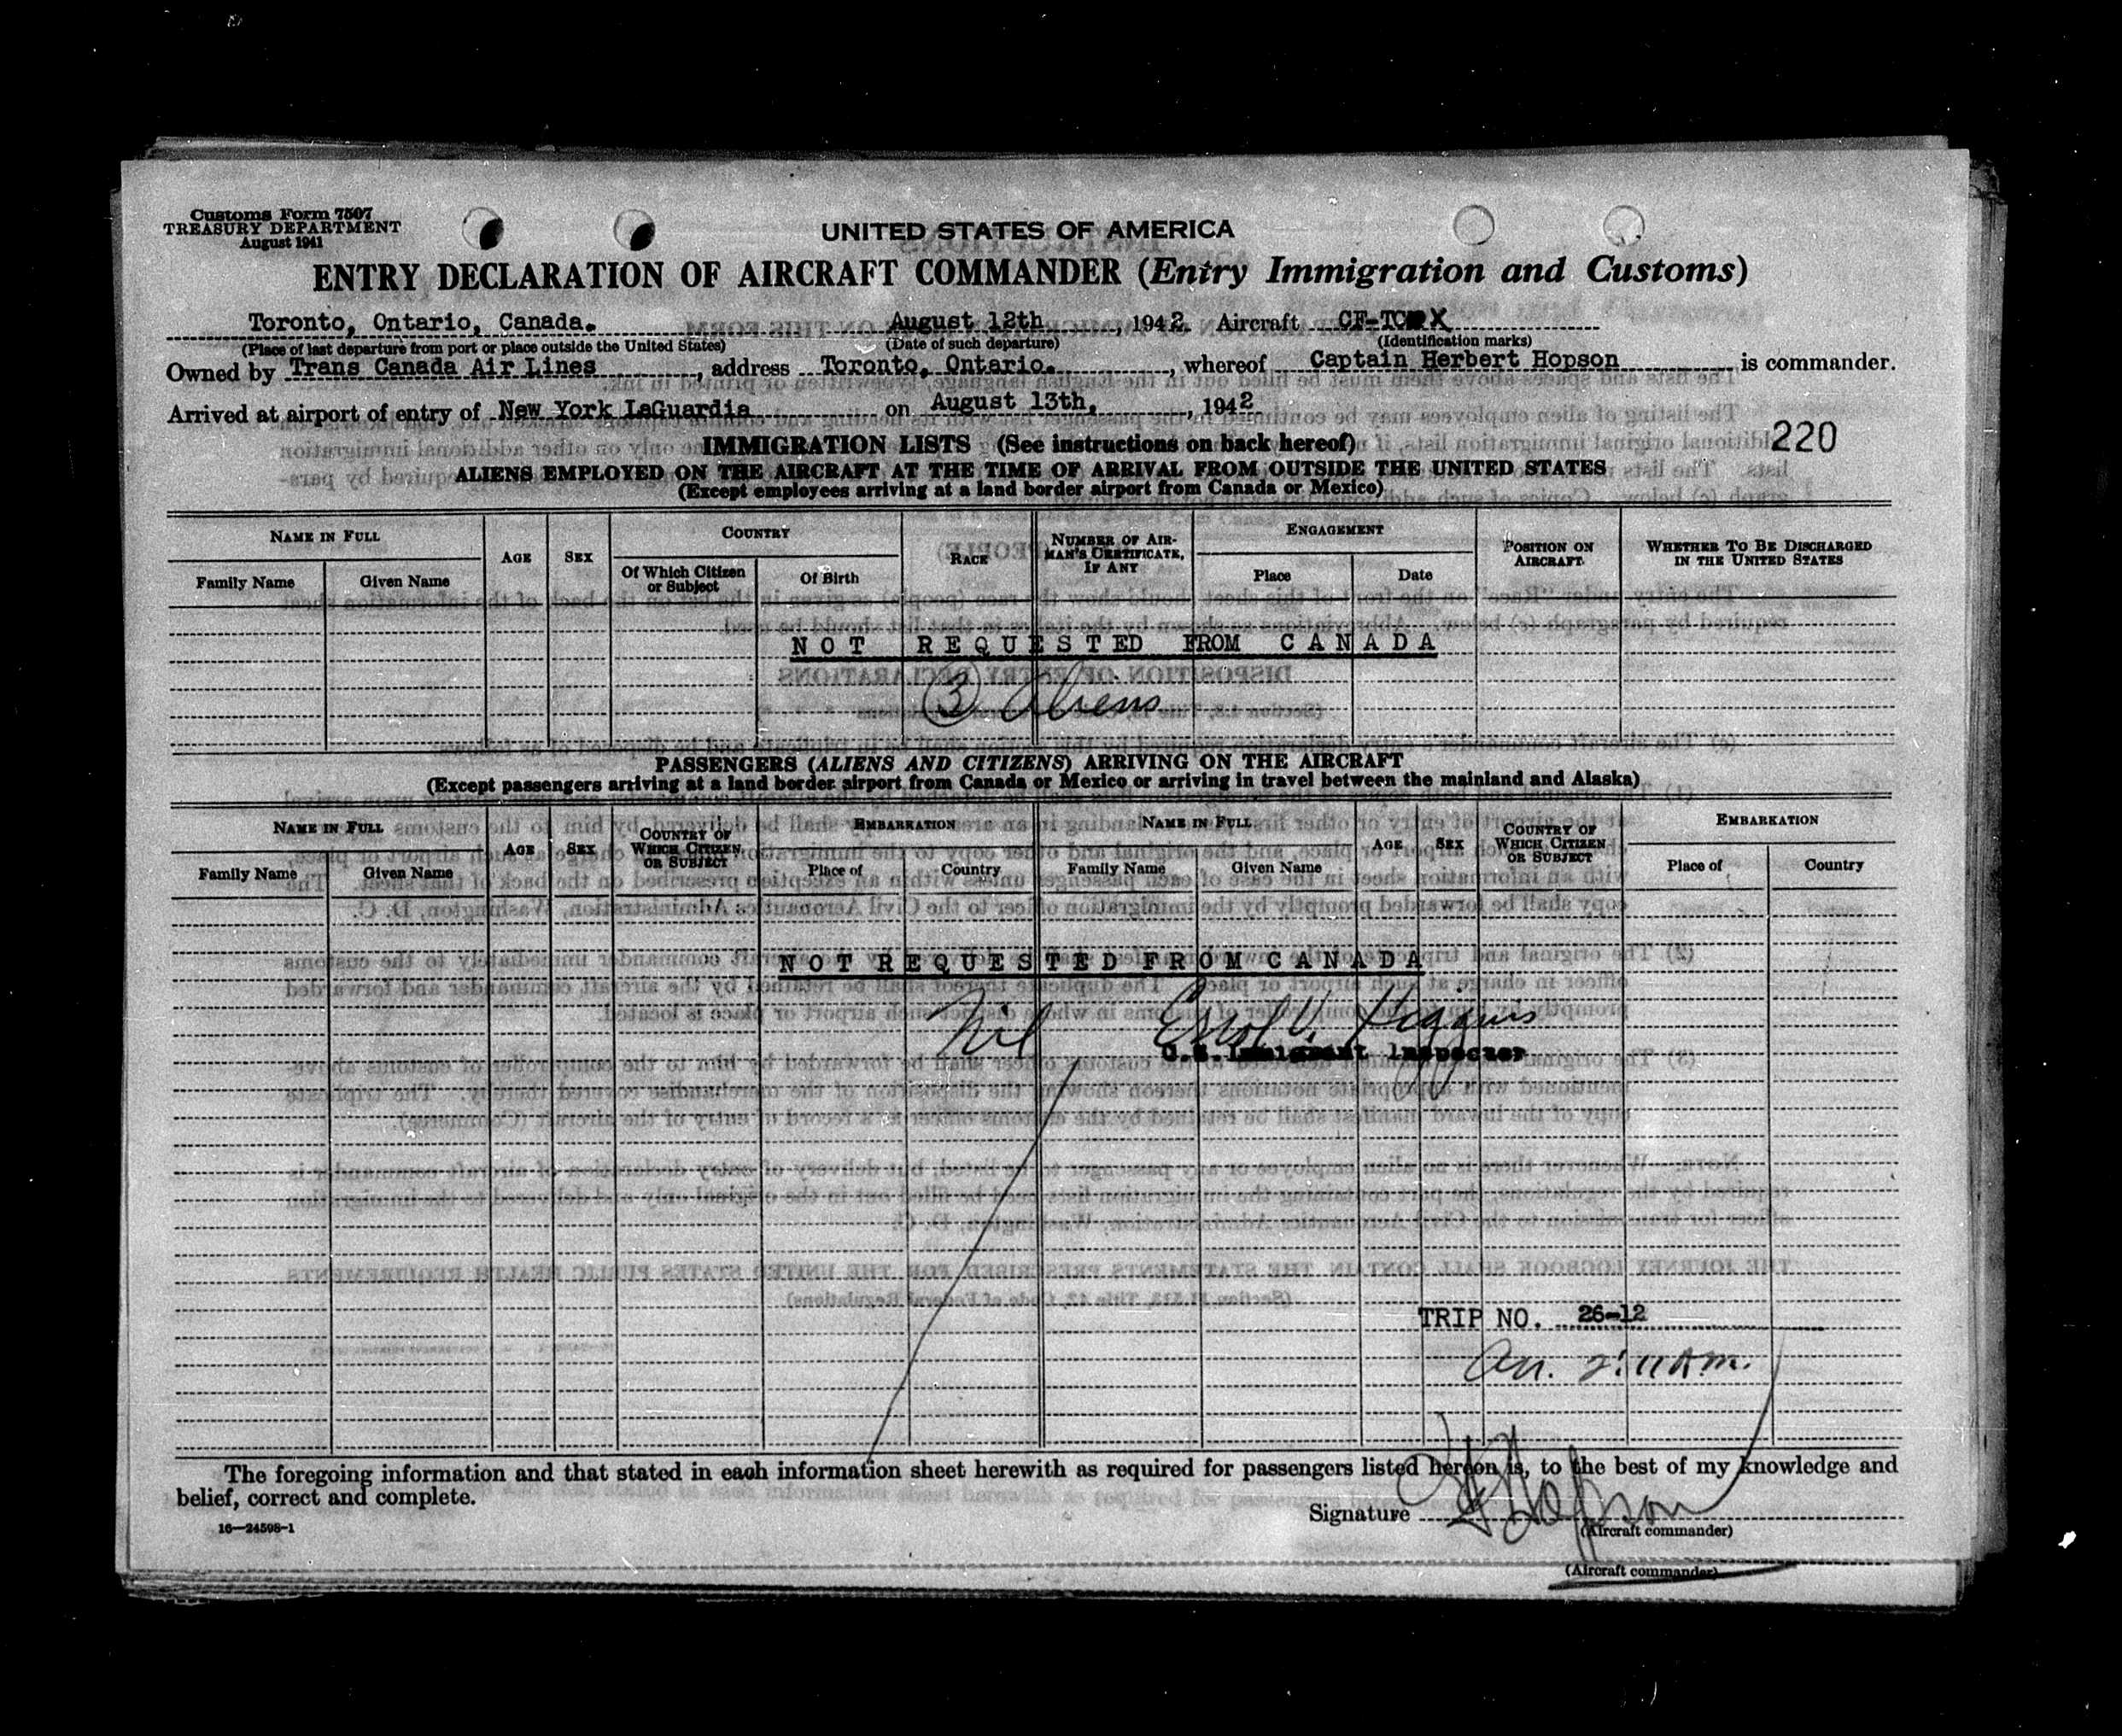 Customs Form 7507
TREASURY DEPARTMENT
August 1941
UNITED STATES OF AMERICA
ENTRY DECLARATION OF AIRCRAFT COMMANDER (Entry Immigration and Customs)
Toronto, Ontario, Canada. August 12th, 1942. Aircraft CF-TC X
(Place of last departure from port or place outside the United States) (Date of such departure) (Identification marks)
Owned by Trans Canada Air Lines, address Toronto, Ontario., whereof Captain Herbert Hopson is commander.
Arrived at airport of entry of New York LaGuardia on August 13th, 1942
IMMIGRATION LISTS (See instructions on back hereof) 220
ALIENS EMPLOYED ON THE AIRCRAFT AT THE TIME OF ARRIVAL FROM OUTSIDE THE UNITED STATES
(Except employees arriving at a land border airport from Canada or Mexico)
NAME IN FULL AGE SEX COUNTRY RACE NUMBER OF AIRMAN'S CERTIFICATE, IF ANY ENGAGEMENT POSITION ON AIRCRAFT WHETHER TO BE DISCHARGED IN THE UNITED STATES
Family Name Given Name Of Which Citizen or Subject Of Birth Place Date
NOT REQUESTED FROM CANADA
3 Aliens
PASSENGERS (ALIENS AND CITIZENS) ARRIVING ON THE AIRCRAFT
(Except passengers arriving at a land border airport from Canada or Mexico or arriving in travel between the mainland and Alaska)
NAME IN FULL AGE SEX COUNTRY OF WHICH CITIZEN OR SUBJECT EMBARKATION NAME IN FULL AGE SEX COUNTRY OF WHICH CITIZEN OR SUBJECT EMBARKATION
Family Name Given Name Place of Country Family Name Given Name Place of Country
NOT REQUESTED FROM CANADA
Nil Errol V. Higgins
U.S. Immigrant Inspector
TRIP NO. 26-12
Arr. 2:11 AM.
The foregoing information and that stated in each information sheet herewith as required for passengers listed hereon is, to the best of my knowledge and
belief, correct and complete.
Signature H Hopson
16—24598-1
(Aircraft commander)
(Aircraft commander)